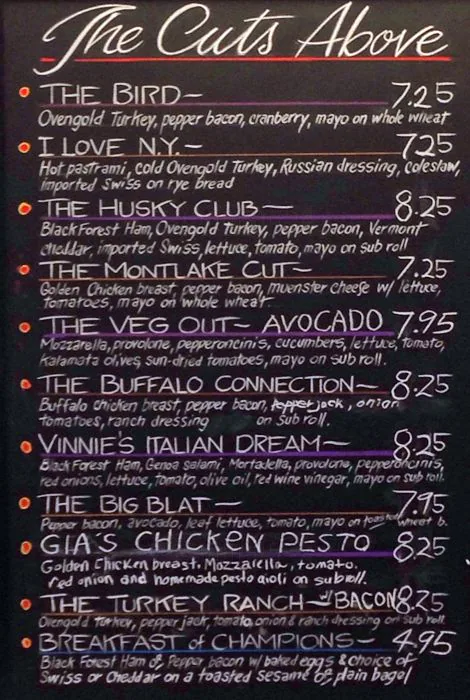 The Cuts Above
THE BIRD~ 7.25
Ovengold Turkey, pepper bacon, cranberry, mayo on whole wheat
I LOVE N.Y.~ 7.25
Hot pastrami, cold Ovengold Turkey, Russian dressing, coleslaw,
imported Swiss on rye bread
THE HUSKY CLUB~ 8.25
Black Forest Ham, Ovengold Turkey, pepper bacon, Vermont
cheddar, imported Swiss, lettuce, tomato, mayo on sub roll
THE MONTLAKE CUT~ 7.25
Golden Chicken breast, pepper bacon, muenster cheese w/ lettuce,
tomatoes, mayo on whole wheat
THE VEG OUT~ AVOCADO 7.95
Mozzarella, provolone, pepperoncini's, cucumbers, lettuce, tomato,
kalamata olives, sun-dried tomatoes, mayo on sub roll.
THE BUFFALO CONNECTION~ 8.25
Buffalo chicken breast, pepper bacon, pepperjack, onion
tomatoes, ranch dressing on sub roll.
VINNIE'S ITALIAN DREAM~ 8.25
Black Forest Ham, Genoa Salami, Mortadella, provolone, pepperoncinis,
red onions, lettuce, tomato, olive oil, red wine vinegar, mayo on sub roll.
THE BIG BLAT~ 7.95
Pepper bacon, avocado, leaf lettuce, tomato, mayo on toasted wheat b.
GIA'S CHICKEN PESTO 8.25
Golden Chicken breast, Mozzarella, tomato,
red onion and homemade pesto aioli on sub roll.
THE TURKEY RANCH~ w/ BACON 8.25
Ovengold Turkey, pepper jack, tomato, onion & ranch dressing on sub roll
BREAKFAST of CHAMPIONS~ 4.95
Black Forest Ham or Pepper bacon w/ baked eggs & choice of
Swiss or Cheddar on a toasted Sesame or plain bagel